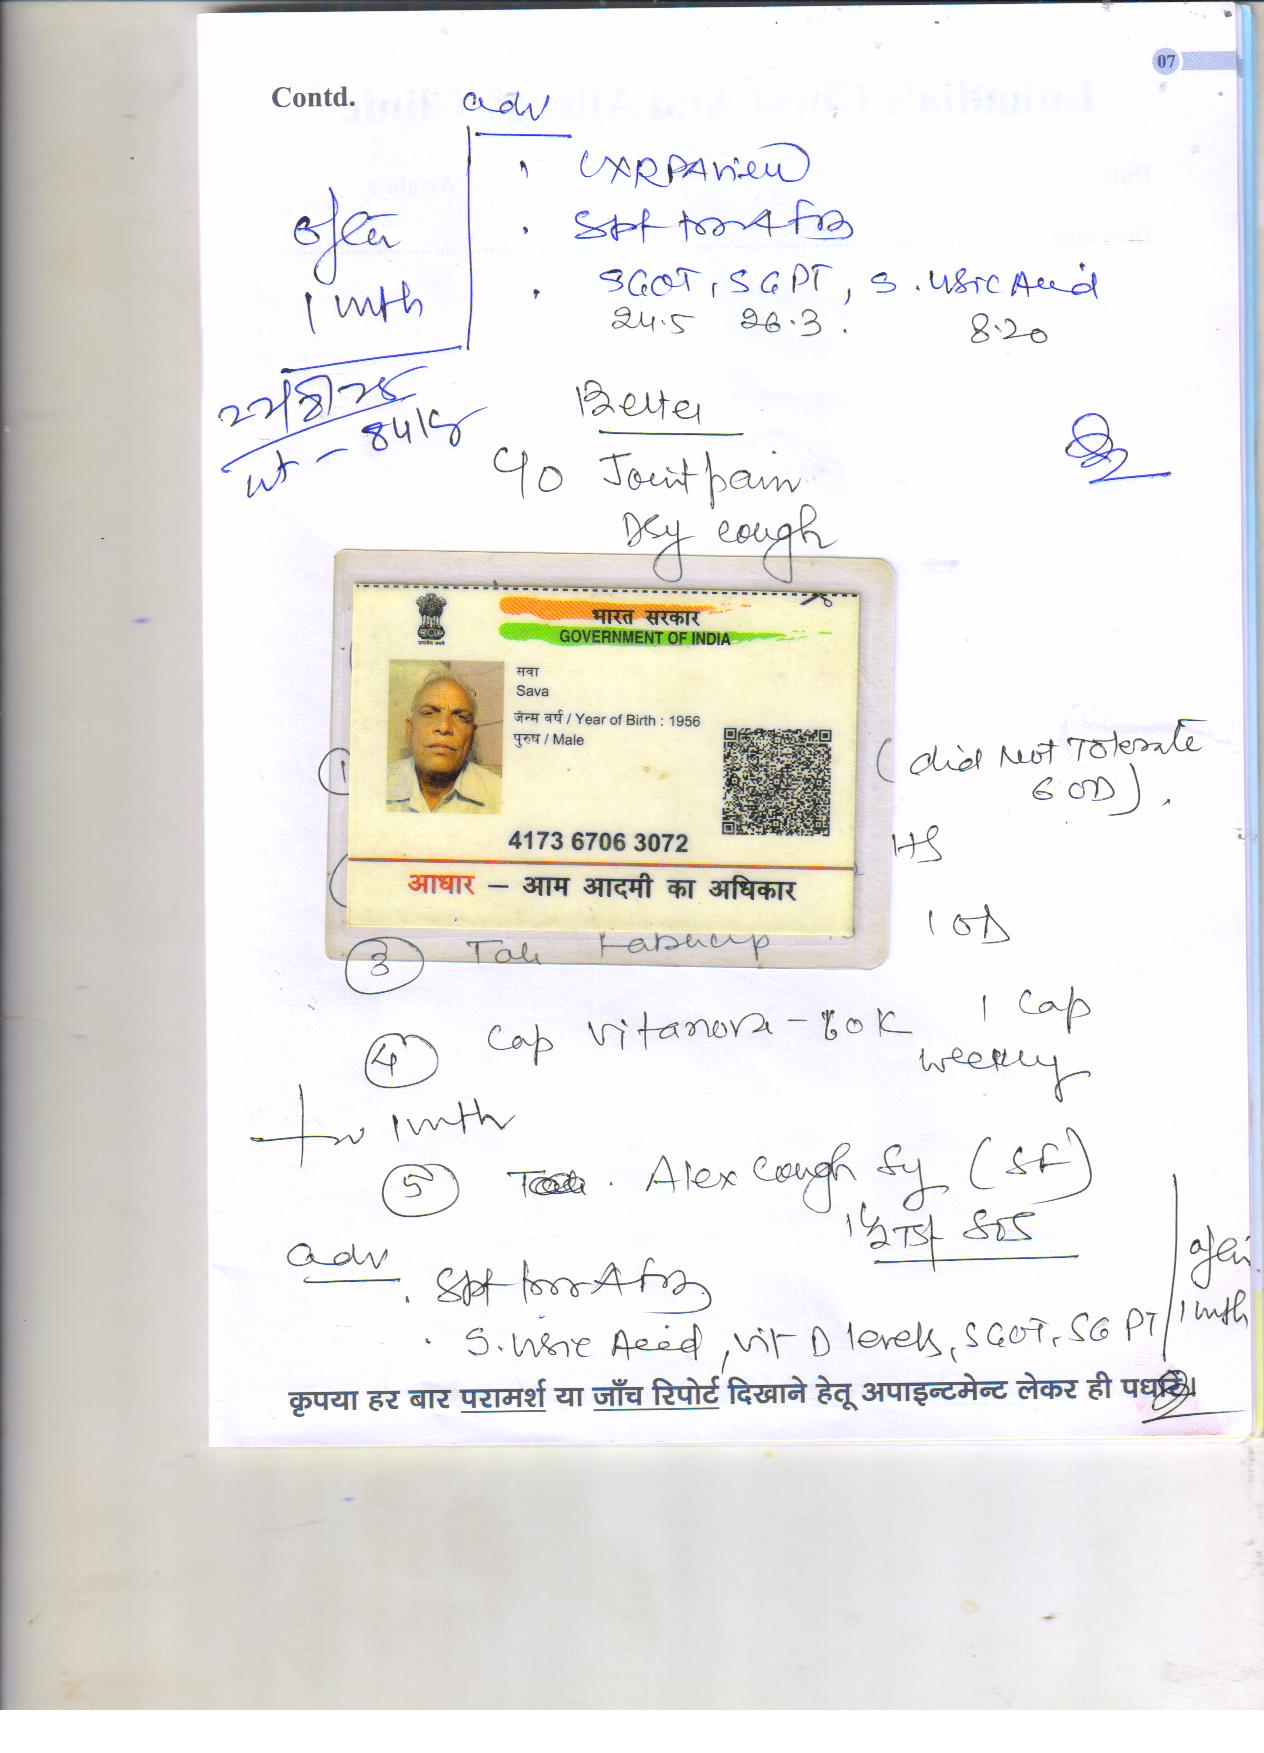 07
Contd.
adv
CXR PA view
Spt for Afb
after
1 mth
SGOT, SGPT, S. Uric Acid
24.5 26.3. 8.20
wt - 84 kg
Better
C/O Joint pain
Dry cough
भारत सरकार
GOVERNMENT OF INDIA
सवा
Sava
जन्म वर्ष / Year of Birth : 1956
पुरुष / Male
4173 6706 3072
आधार – आम आदमी का अधिकार
1
(did Not Tolerate
6 OD).
HS
3 Tab 1 OD
4 Cap Vitanova - 60K 1 Cap
weekly
1 mth
5 Alex Cough Sy (SF)
1½ TSF SOS
adv
Spt for Afb
S. Uric Acid, Vit D levels, SGOT, SGPT
after
1 mth
कृपया हर बार परामर्श या जाँच रिपोर्ट दिखाने हेतू अपाइन्टमेन्ट लेकर ही पधारें।